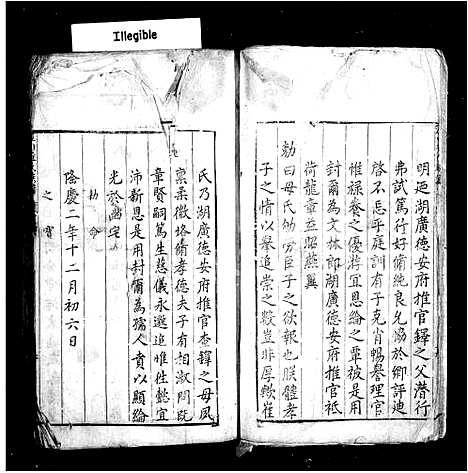 Illegible
明廷湖廣德安府推官鐸之父潛行
弗試篤行好脩純良允協於鄉評迪
啓不忘乎庭訓有子克肖暢譽理官
惟祿養之優游宜恩綸之覃被是用
封爾為文林郎湖廣德安府推官祗
荷龍章益昭燕翼
勅曰母氏劬勞臣子之欲報也朕體孝
子之情以舉追崇之數豈非厚歟崔
氏乃湖廣德安府推官查鐸之母夙
稟柔徽恪脩孝德夫子有相淑問既
章賢嗣篤生慈儀永邈追惟性懿宜
沛新恩是用封爾為孺人賁以顯綸
光於幽穸
勅命
隆慶二年十二月初六日
之寶